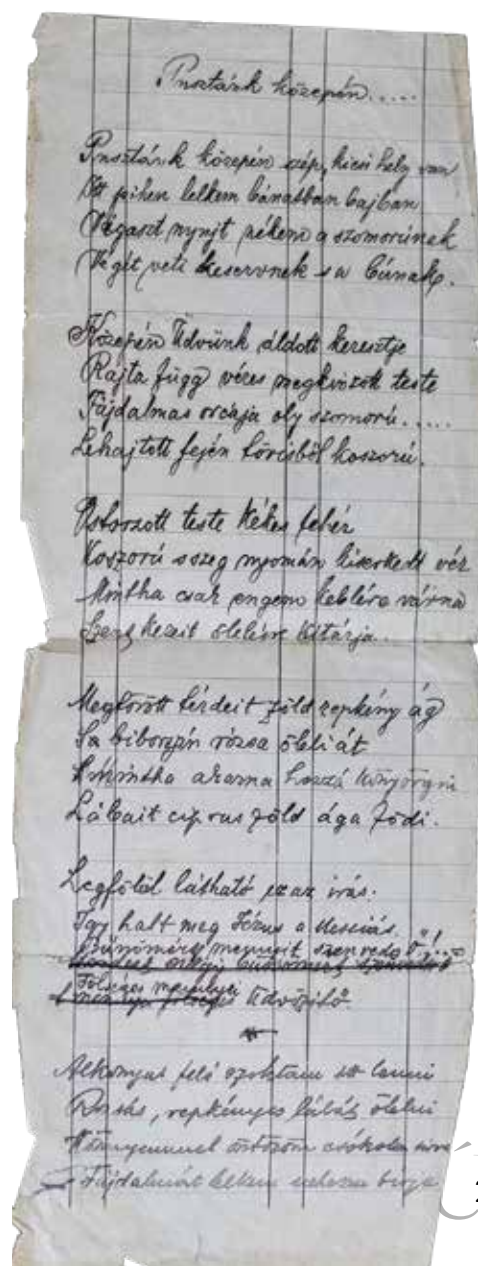 Pusztánk közepén.....
Pusztánk közepén szép, kicsi hely van
Itt pihen lelkem bánatban bajban
Vigaszt nyujt nékem a szomorúnak
Végit veti keservnek s a búnak.
Közepén Üdvünk áldott keresztje
Rajta függ véres megkinzott teste
Fájdalmas orcája oly szomorú.....
Lehajtott fején tövisből koszorú.
Ostorzott teste kékes fehér
Koszorú s szeg nyomán kiserkedt vér
Mintha csak engem keblére várna
Szent kezeit ölelésre kitárja.
Megtörött térdeit zöld repkény ág
S a biborszín rózsa öleli át
S mintha akarna hozzá könyörgni
Lábait ciprus zöld ága födi.
Legfölül látható ez az irás:
Igy halt meg Jézus a Messiás.
bünömért mennyit szenvedő
Fölséges mennyei
Üdvözitő.
Alkonyat felé szoktam itt lenni
Rózsás, repkényes lábát ölelni
Könnyemmel öntözöm csókolom
Fájdalmát lelkem